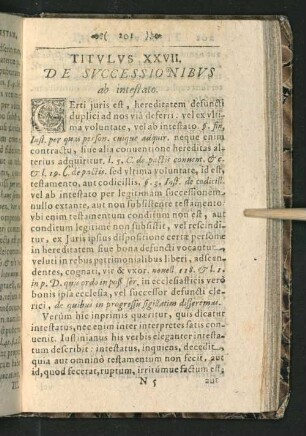 ( 201 )
TITVLVS XXVII.
DE SVCCESSIONIBVS
ab inteſtato.
CErti juris eſt, hereditatem defuncti
duplici ad nos viâ deferri: vel ex vlti-
ma voluntate, vel ab inteſtato §. fin.
Inſt. per quas perſon. cuique acquir. neque enim
contractu, ſive alia conventione hereditas al
terius adquiritur, l. 5. C. de pactis convent. &c.
& l. 19. C. de pactis. ſed vltima voluntate, id eſt,
teſtamento, aut codicillis. §. 2. Inſt. de codicill.
vel ab inteſtato per legitimam ſucceſſionem,
nullo extante, aut non ſubſiſtente teſtamento.
vbi enim teſtamentum conditum non eſt, aut
conditum legitimè non ſubſiſtit, vel reſcindi-
tur, ex Juris ipſius diſpoſitione certæ perſonæ
in hereditatem ſive bona defuncti vocantur,
veluti in rebus patrimonialibus liberi, adſcen-
dentes, cognati, vir & vxor. novell. 118. & l. 1.
in p. D. quis ordo in poſſ. ſer. in eccleſiaſticis verò
bonis ipſa eccleſia, vel ſucceſſor defuncti cle-
rici, de quibus in progreſſu ſigillatim diſſeremus.
Verùm hîc inprimis quæritur, quis dicatur
inteſtatus, nec enim inter interpretes ſatis con-
venit. Iuſtinianus his verbis eleganter inteſta-
tum deſcribit: inteſtatus, inquiens, decedit,
quia aut omninò teſtamentum non fecit, aut
id, quod fecerat, ruptum, irritúmve factum eſt,
N 5 aut